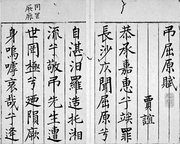 吊屈原賦
賈誼
恭承嘉惠兮竢罪
長沙仄聞屈原兮
自湛汨羅造托湘
流兮敬弔先生遭
世罔極兮廼隕厥
身嗚嘑哀哉兮逢